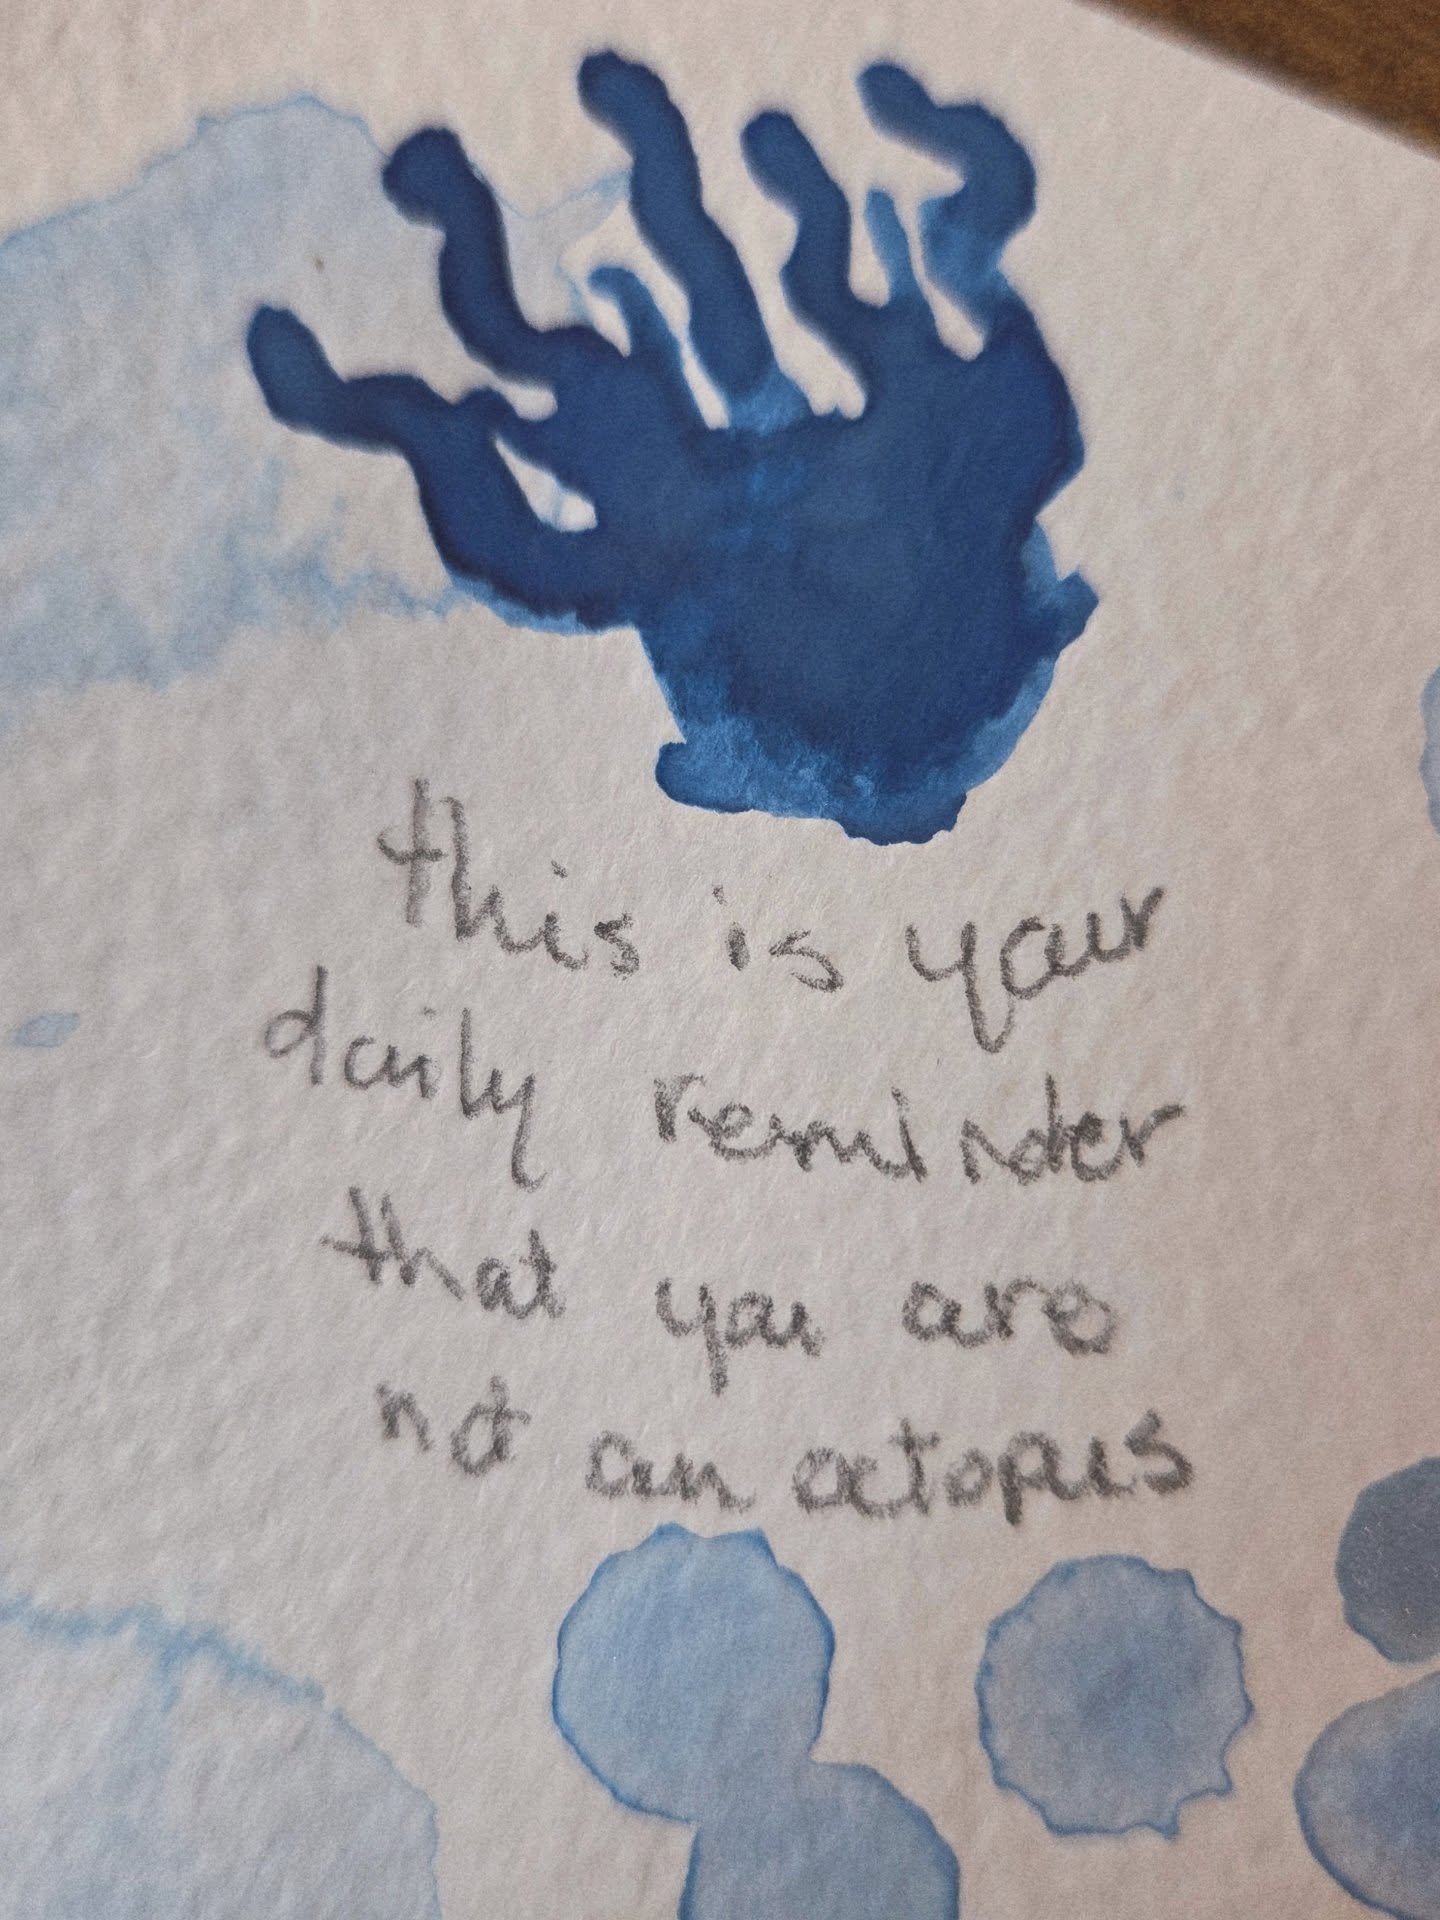 this is your
daily reminder
that you are
not an octopus